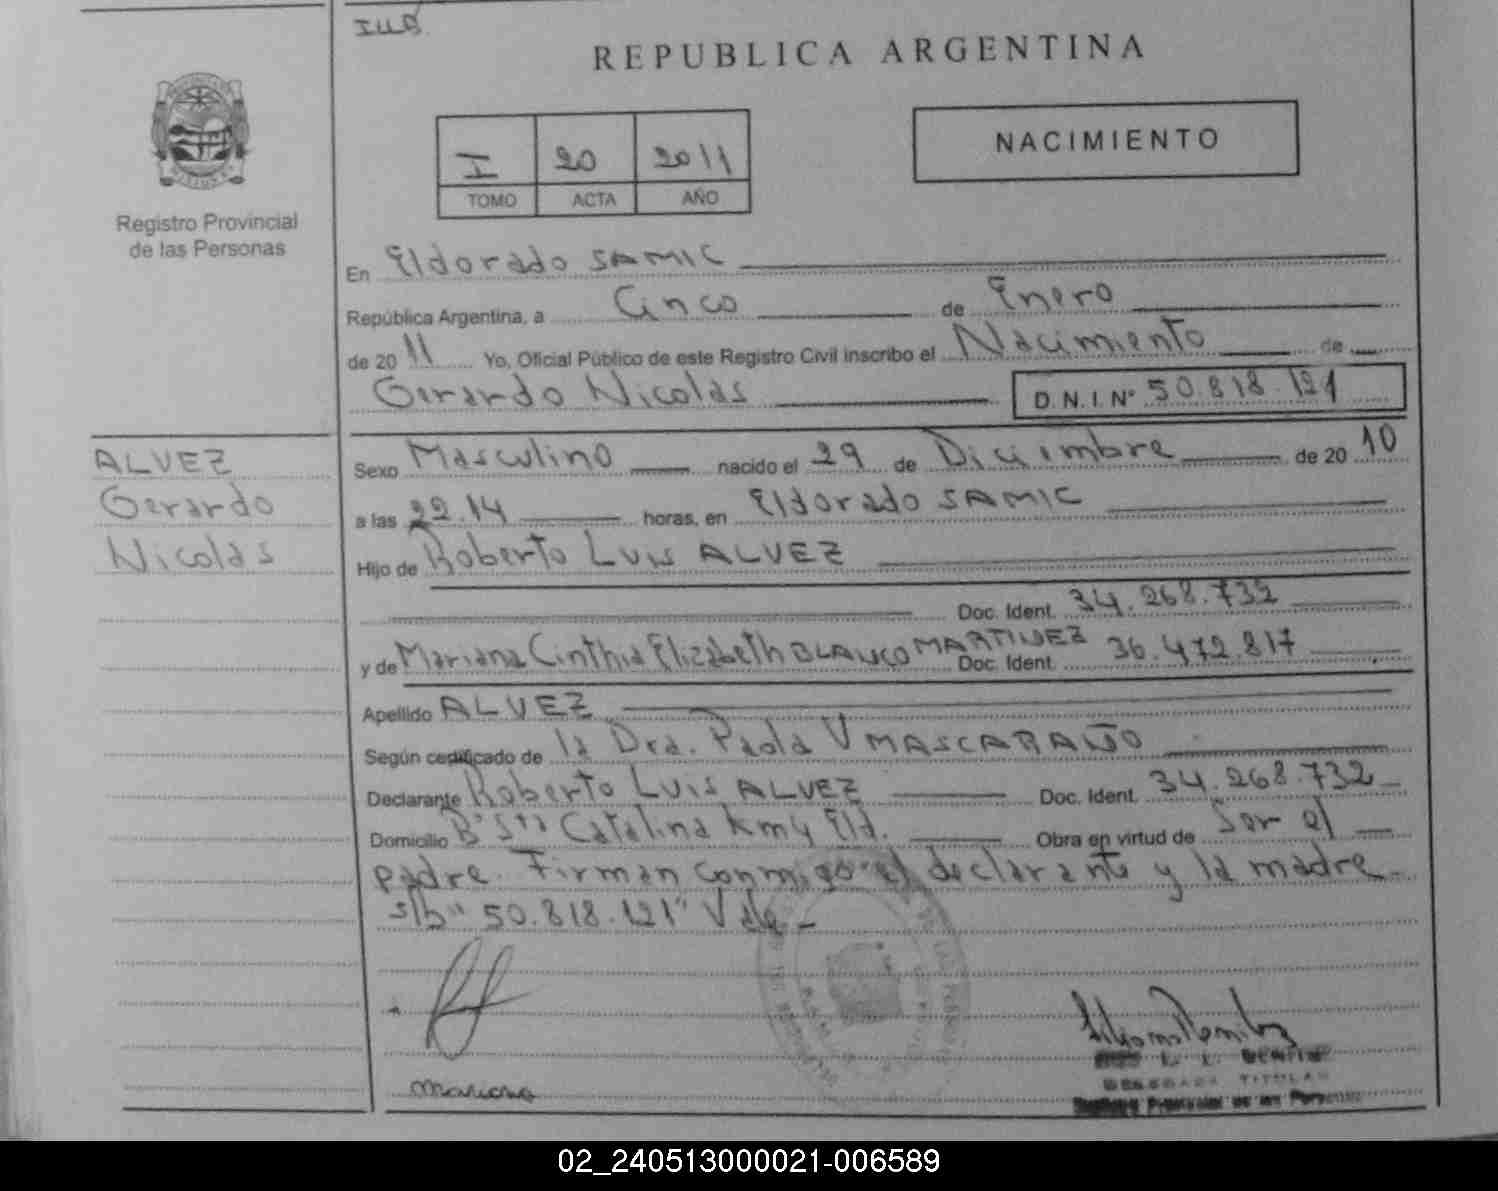 REPUBLICA ARGENTINA
NACIMIENTO
I 20 2011
TOMO ACTA AÑO
Registro Provincial
de las Personas
En Eldorado SAMIC
República Argentina, a Cinco de Enero
de 2011 Yo, Oficial Público de este Registro Civil inscribo el Nacimiento de
Gerardo Nicolas D.N.I.Nº 50.818.121
ALVEZ
Gerardo
Nicolas
Sexo Masculino nacido el 29 de Diciembre de 2010
a las 22.14 horas, en Eldorado SAMIC
Hijo de Roberto Luis ALVEZ
Doc. Ident. 34.268.732
y de Mariana Cinthia Elizabeth BLANCO MARTINEZ Doc. Ident. 36.472.817
Apellido ALVEZ
Según certificado de la Dra. Paola V MASCARAÑO
Declarante Roberto Luis ALVEZ Doc. Ident. 34.268.732
Domicilio Bº Sta Catalina Km4 Eld. Obra en virtud de Ser el
padre. Firman conmigo el declarante y la madre.
s/b "50.818.121" Vale.-
Mariana
TITULAR
02_240513000021-006589